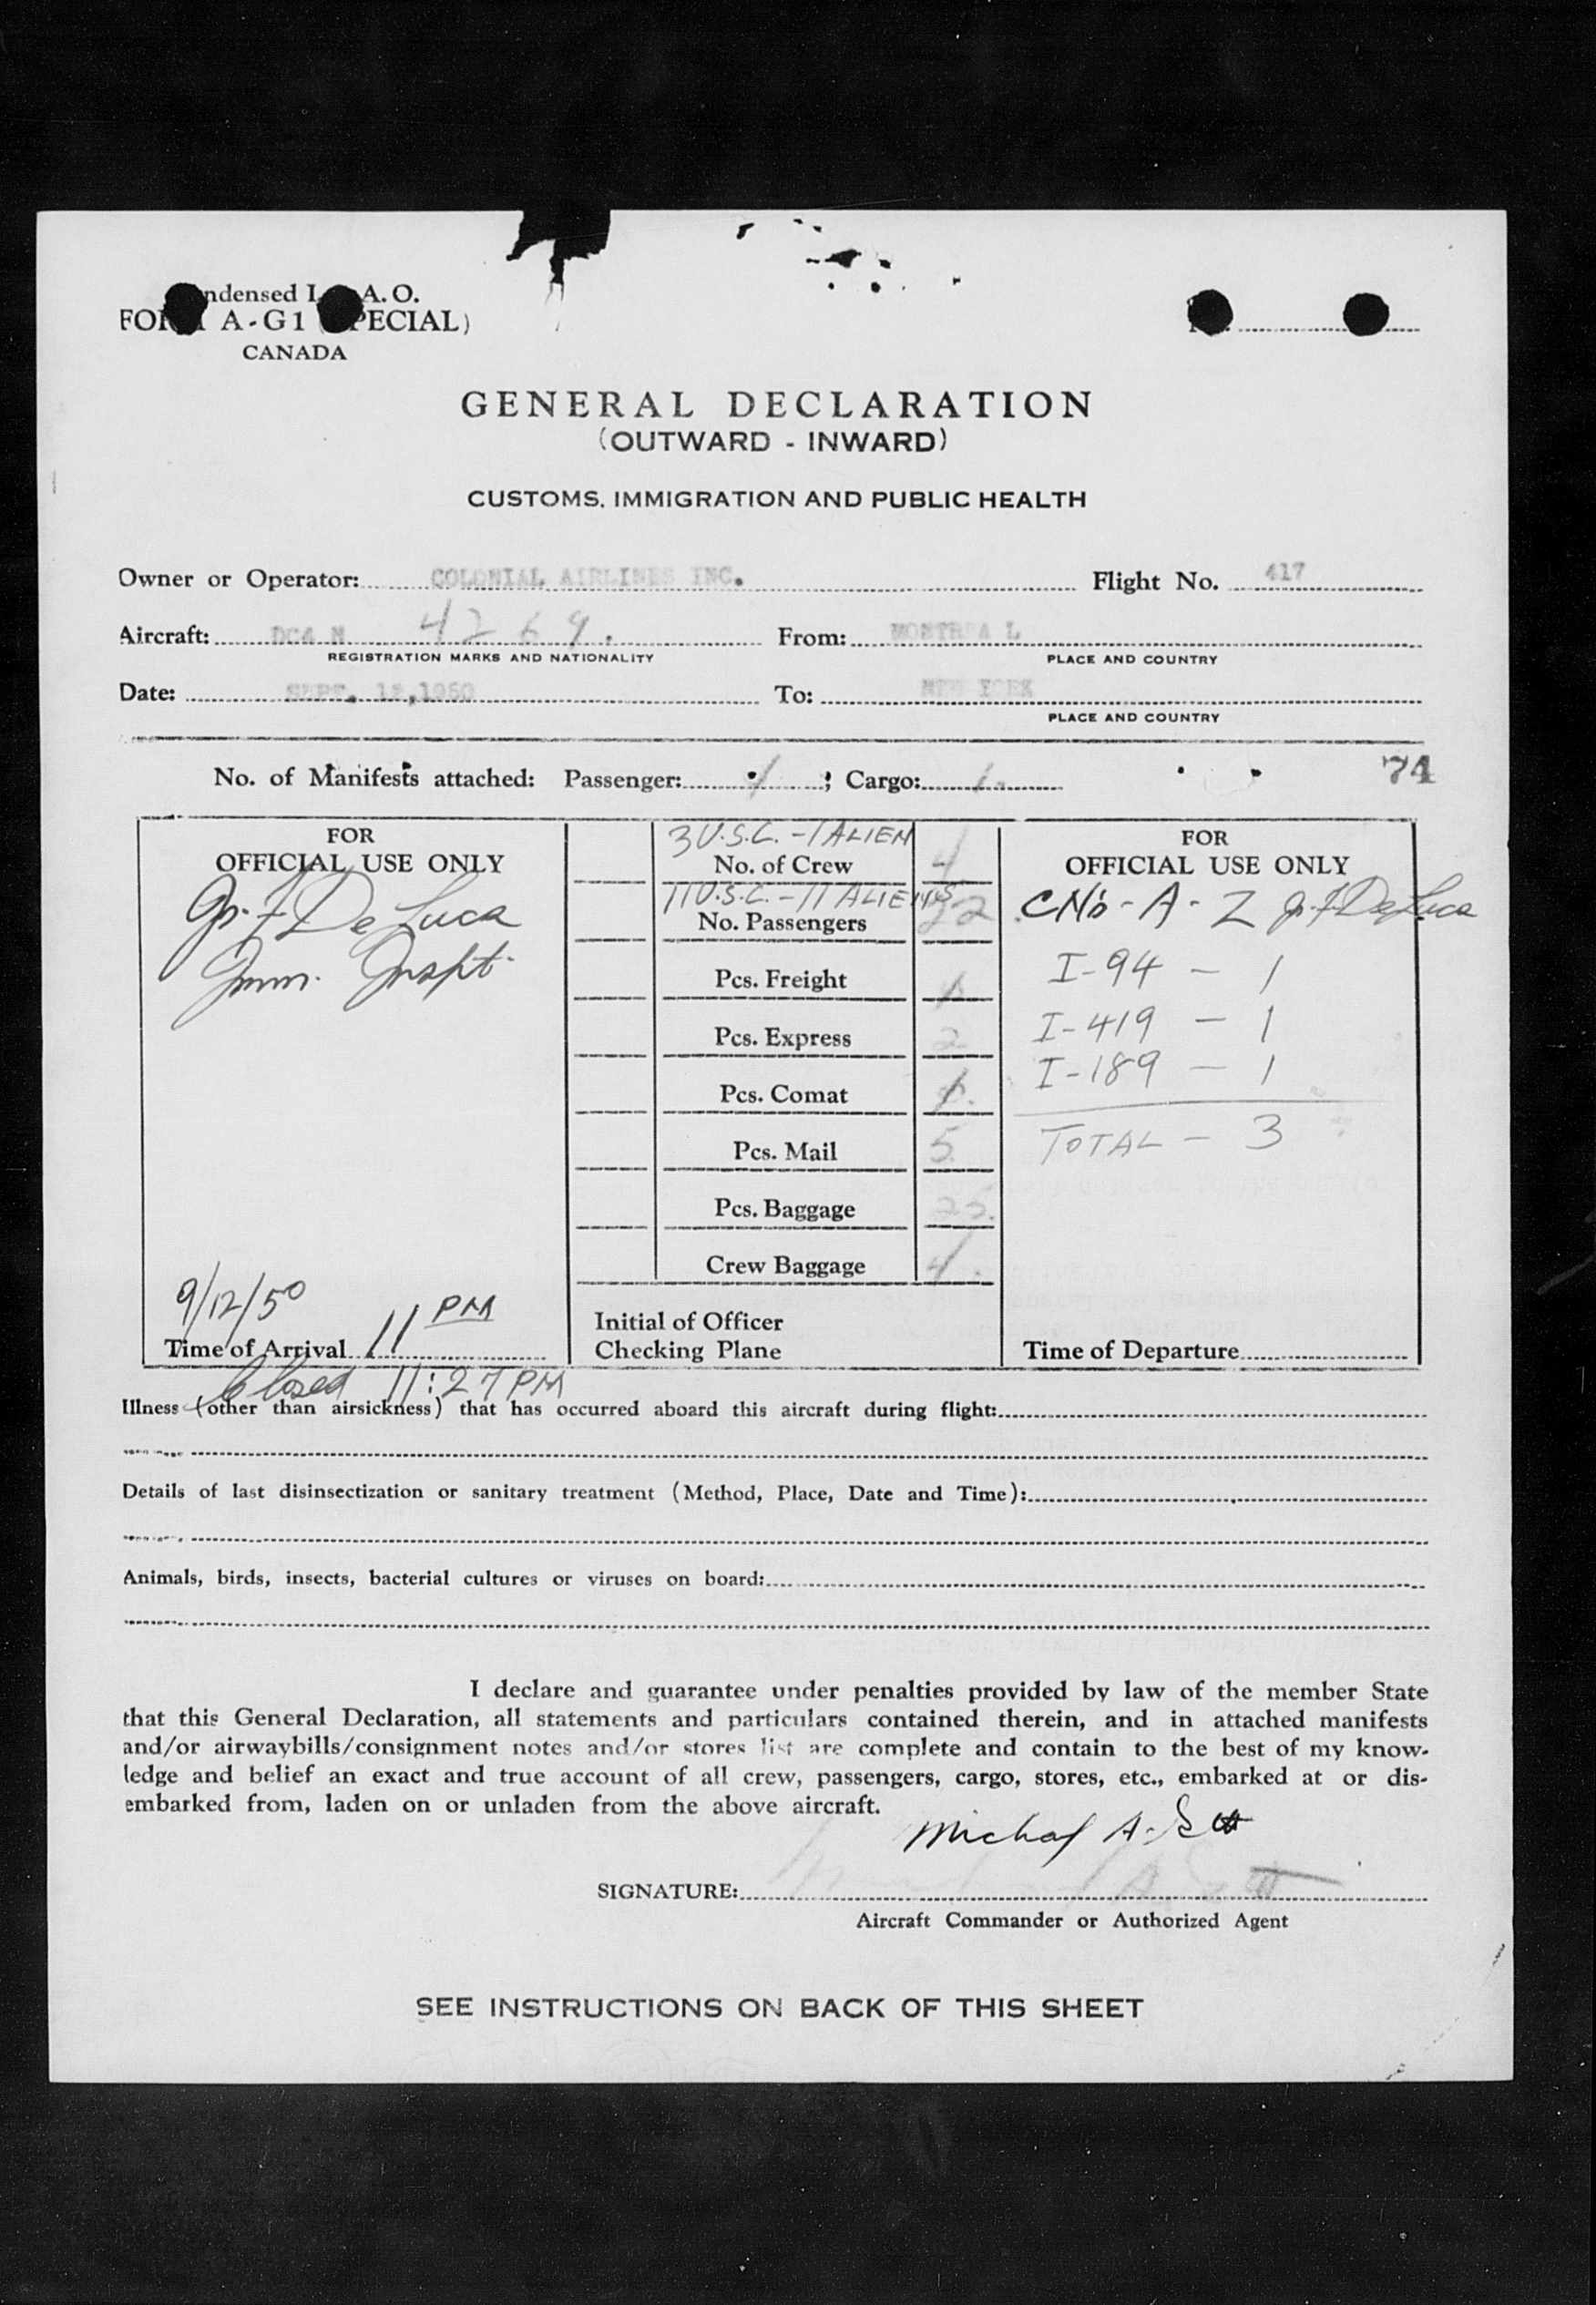 ndensed I A. O.
FORM A-G1 (SPECIAL)
CANADA
GENERAL DECLARATION
(OUTWARD - INWARD)
CUSTOMS, IMMIGRATION AND PUBLIC HEALTH
Owner or Operator: COLONIAL AIRLINES INC. Flight No. 417
Aircraft: DC4 N 4269. From: MONTREAL
REGISTRATION MARKS AND NATIONALITY PLACE AND COUNTRY
Date: SEPT. 12,1950 To: NEW YORK
PLACE AND COUNTRY
No. of Manifests attached: Passenger: 1 ; Cargo: 1.
74
FOR
OFFICIAL USE ONLY
De Luca
Imm. Inspt.
9/12/50
Time of Arrival 11 PM
Closed 11:27 PM
3 U.S.C. - 1 ALIEN
No. of Crew 4
11 U.S.C. - 11 ALIENS
No. Passengers 22
Pcs. Freight
Pcs. Express 2
Pcs. Comat
Pcs. Mail 5
Pcs. Baggage 25.
Crew Baggage 4.
Initial of Officer
Checking Plane
FOR
OFFICIAL USE ONLY
CNo - A - Z De Luca
I-94 - 1
I-419 - 1
I-189 - 1
TOTAL - 3
Time of Departure
Illness (other than airsickness) that has occurred aboard this aircraft during flight:
Details of last disinsectization or sanitary treatment (Method, Place, Date and Time):
Animals, birds, insects, bacterial cultures or viruses on board:
I declare and guarantee under penalties provided by law of the member State
that this General Declaration, all statements and particulars contained therein, and in attached manifests
and/or airwaybills/consignment notes and/or stores list are complete and contain to the best of my know-
ledge and belief an exact and true account of all crew, passengers, cargo, stores, etc., embarked at or dis-
embarked from, laden on or unladen from the above aircraft.
Michael A.
SIGNATURE:
Aircraft Commander or Authorized Agent
SEE INSTRUCTIONS ON BACK OF THIS SHEET